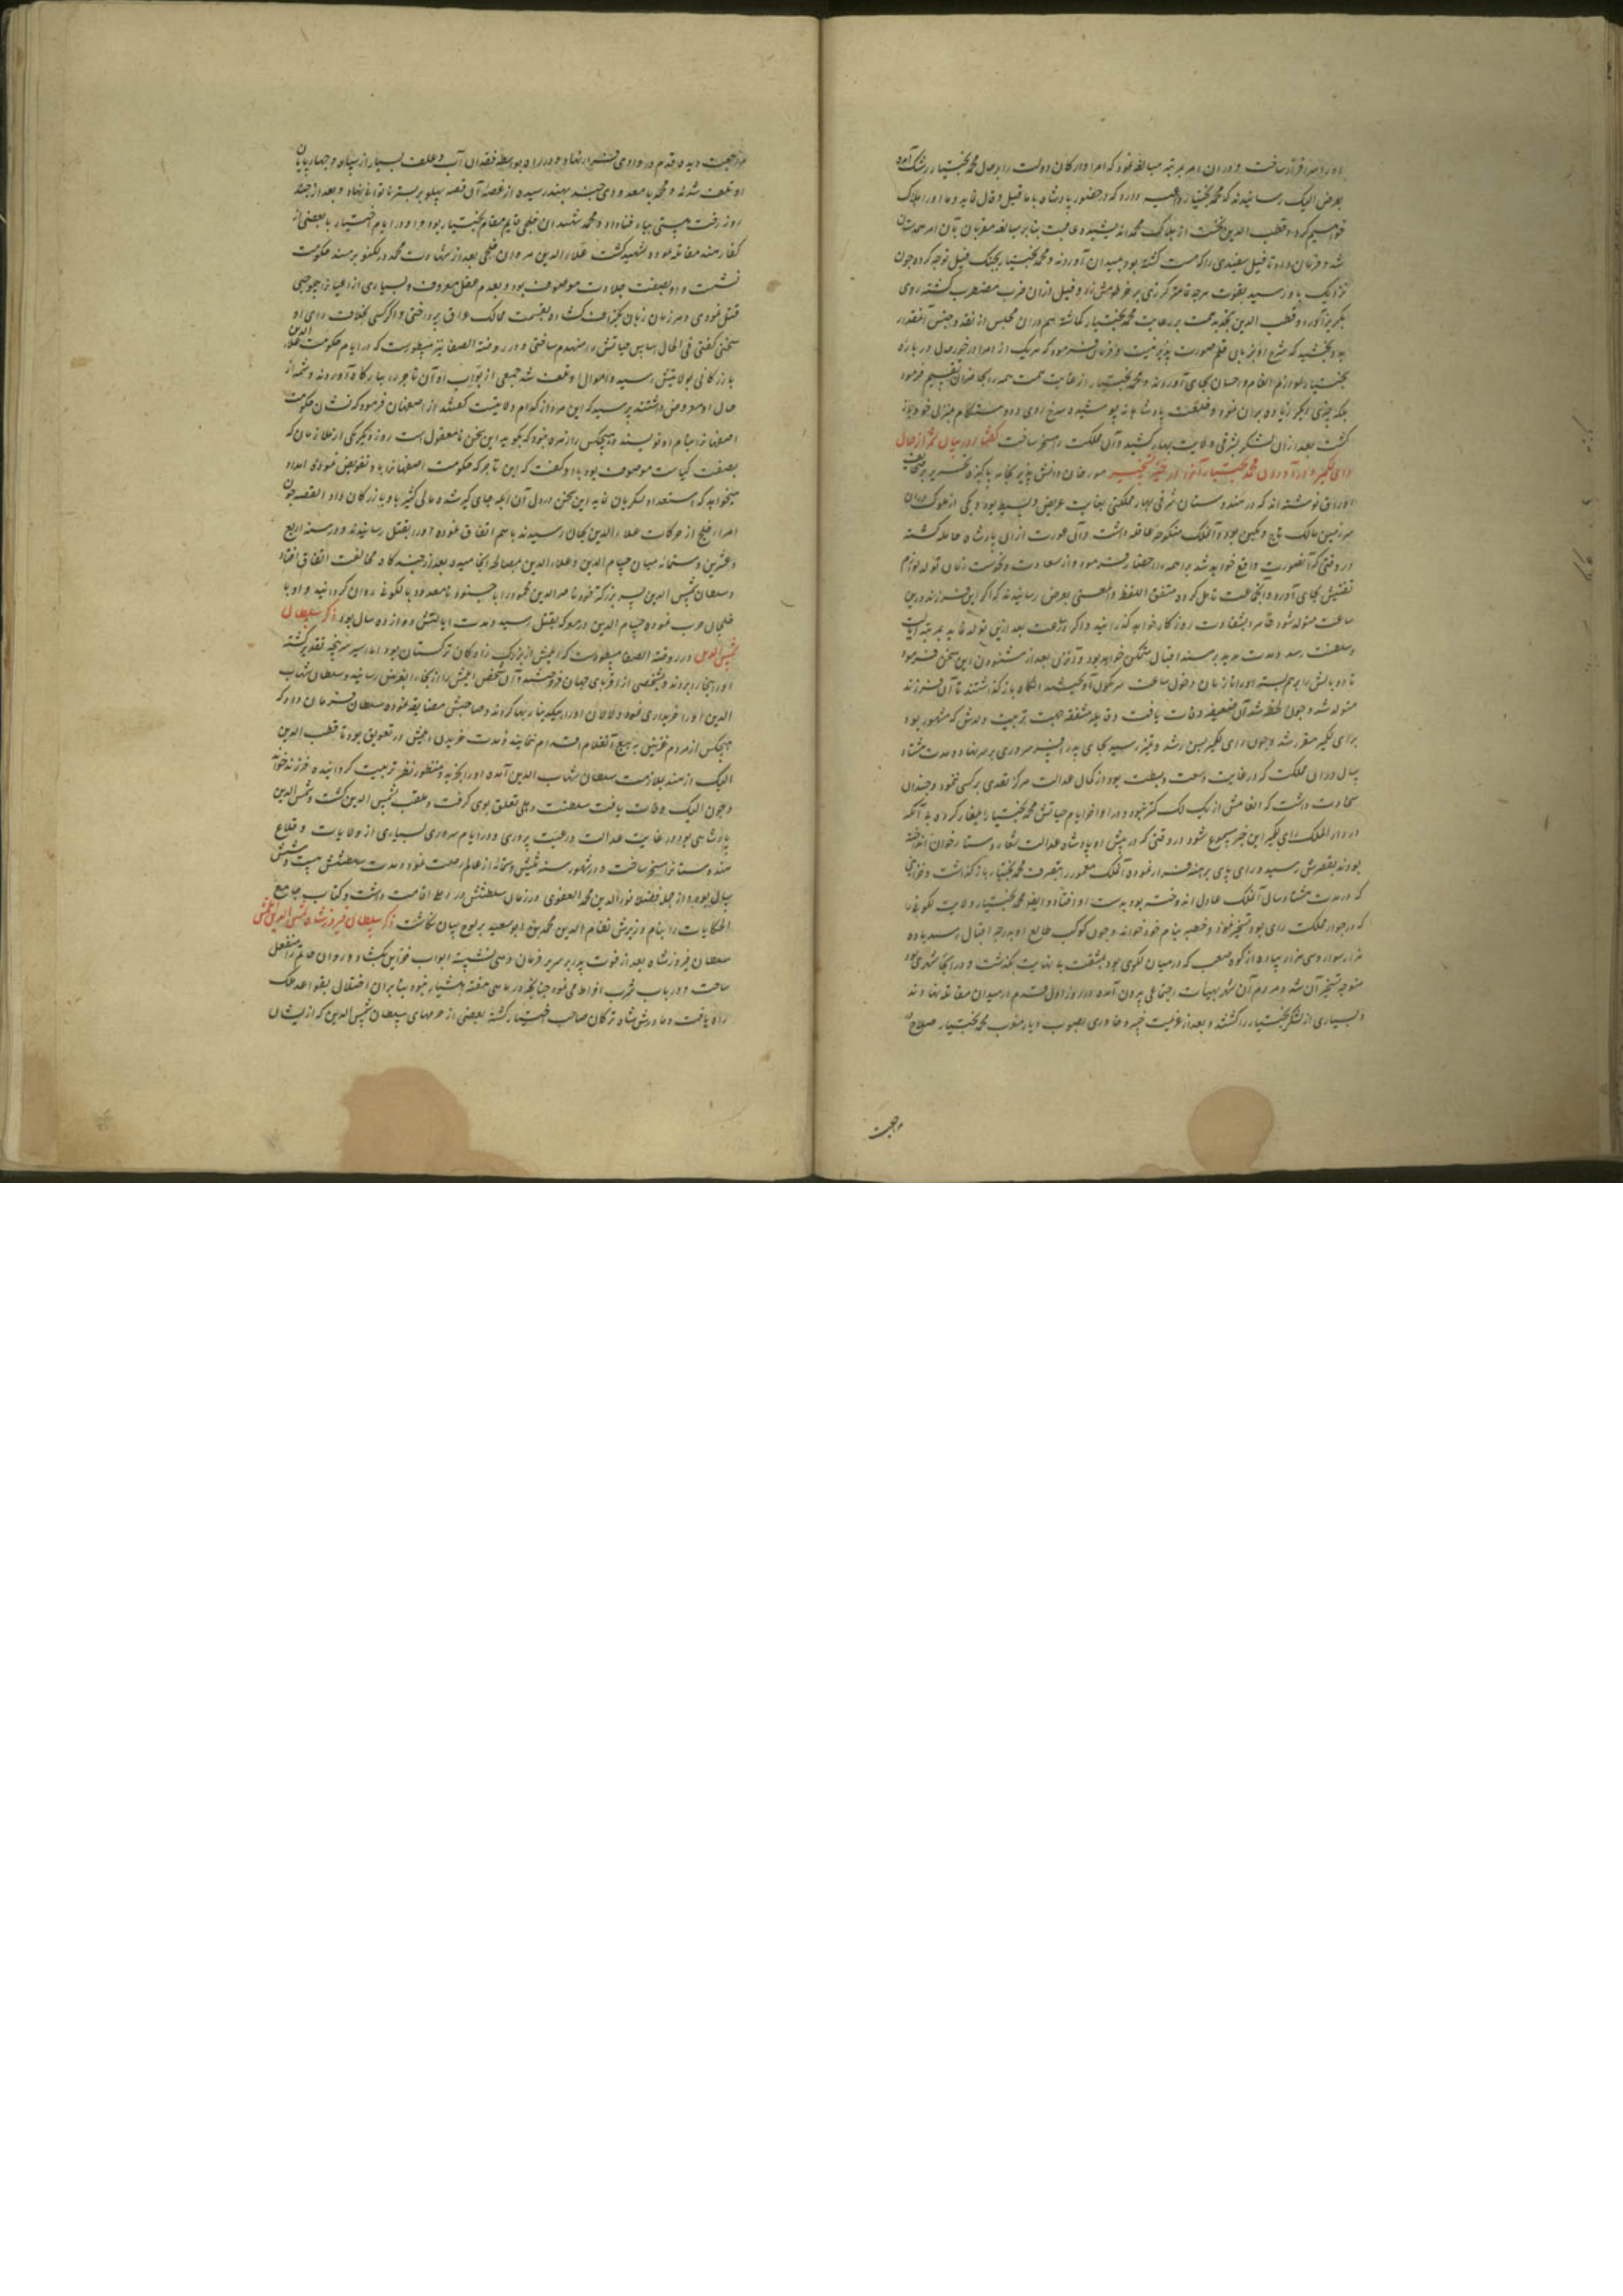 او را سرافراز ساخت و در آن امر بمرتبه مبالغه نمود که امرا و ارکان دولت را بر حال محمد بختیار رشک آمده
بعرض ایبک رسانیدند که محمد بختیار داعیه دارد که در حضور پادشاه با ما فیل و قال نماید و ما او را هلاک
خواهیم کرد و قطب الدین نخست از هلاک محمد اندیشیده عاقبت بنابر مبالغه مقربان بآن امر همداستان
شد و فرمان داد تا فیل سفیدی را که مست گشته بود بمیدان آوردند و محمد بختیار بجنگ فیل توجه کرده چون
نزدیک باو رسید بقوت هرچه تمامتر گرزی بر خرطومش زد و فیل از آن ضرب مضطرب گشته روی
بگریز آورد و قطب الدین همت بر رعایت محمد بختیار گماشته هم در آن مجلس از نقد و جنس آنمقدار
بدو بخشید که شرح آن بزبان قلم صورت پذیر نیست و فرمان فرمود که هر یک از امرا در خور حال در باره
بختیار لوازم انعام و احسان بجای آوردند و محمد بختیار از غایت همت همه را بحاضران تقسیم فرمود
بلکه چیزی دیگر زیاده بر آن نمود و خلعت پادشاهانه پوشیده سرخ روی و دوستکام بمنزل خود باز
گشت بعد از آن لشکر بشرقی ولایت بهار کشید و آن مملکت را مسخر ساخت گفتار در بیان شمه از حال
رای لکمیر و در آوردن محمد بختیار آنرا در حیز تسخیر مورخان دانش پذیر بخامه پاکیزه تحریر بر صحایف
اوراق نوشته اند که در هندوستان شرقی بهار مملکتی بغایت عریض و بسیط بود و یکی از ملوک در آن
سرزمین مالک تاج و نگین بود و آن ملک منکوحه عاقله داشت و آن عورت از آن پادشاه حامله گشته
در وقتی که آنصورت واقع خواهد شد براهمه را احضار فرمود و از سعادت و نحوست زمان تولد لوازم
تفتیش بجای آورد و آنجماعت تامل کرده متفق اللفظ والمعنی بعرض رسانیدند که اگر این فرزند درین
ساعت متولد شود تمام بشقاوت روزگار خواهد گذرانید و اگر دو ساعت بعد ازین تولد نماید بمرتبه ایالت
و سلطنت رسد و مدت مدید بر مسند اقبال متمکن خواهد بود و آنزن بعد از شنودن این سخن فرمود
تا دو پایش را برهم بسته او را تا زمان دخول ساعت سرنگون آویختند آنگاه باز گذاشتند تا آن فرزند
متولد شد و چون لحظه شد آن ضعیفه وفات یافت و قابله مشفقه جهت تربیت ولدش که مشهور بود
برای لکمیر مقرر شد و چون رای لکمیر بسن رشد و تمیز رسید بجای پدر افسر سروری بر سر نهاد و مدت هشتاد
سال در آن مملکت که در غایت وسعت و بسطت بود از کمال عدالت هرگز تعدی بر کسی ننمود و چندان
سخاوت داشت که انعامش از یک لک کمتر نبود و در اواخر ایام حیاتش محمد بختیار ایلغار کرده بی آنکه
در دار الملک رای لکمیر این خبر مسموع شود در وقتی که در پیش او پادشاه عدالت شعار دستار خوان انداخته
بودند بقصرش رسید و رای پای برهنه فرار نموده آن ملک معمور را بتصرف محمد بختیار باز گذاشت و خزاینی
که در مدت هشتاد سال آن ملک عادل اندوخته بود بدست او افتاد و ایضا محمد بختیار ولایت لکنوتی را
که در جوار مملکت رای بود تسخیر نمود و خطبه بنام خود خواند و چون کوکب طالع او بدرجه اقبال رسید با ده
هزار سوار و سی هزار پیاده از کوه صعب که در میان لکنوتی بود بمشقت بی نهایت بگذشت و در آنجا شهری بود
متوجه تسخیر آن شد و مردم آن شهر بهیات اجتماعی بیرون آمده در روز اول قدم در میدان مقاتله نهادند
و بسیاری از لشکر بختیار را کشتند و بعد از غروب خسرو خاوری بصوب دیار مغرب محمد بختیار صلاح در
مراجعت
مراجعت دیده قدم در وادی فرار نهاد و در راه بواسطه فقدان آب و علف بسیار از سپاه و چهارپایان
او تلف شدند و محمد با معدودی چند بهند رسیده از غصه آن قصه پهلو بر بستر ناتوانی نهاد و بعد از چند
روز رخت هستی بباد فنا داد و محمد شیران خلجی قایم مقام بختیار بود و او در ایام اختیار با بعضی از
کفار هند مقاتله نمود و شهید گشت علاء الدین مردان خلجی بعد از شهادت محمد در لکنو بر مسند حکومت
نشست و او بصفت جلادت موصوف بود و بعدم عقل معروف و بسیاری از اعیان را بیموجبی
قتل نمودی و هر زمان زبان بگزاف گشاده بقسمت ممالک عراق پرداختی و اگر کسی بخلاف رای او
سخنی گفتی فی الحال اساس حیاتش را منهدم ساختی و در روضة الصفا نیز مسطور است که در ایام حکومت علاء الدین
بازرگانی بولایتش رسید و اموال او تلف شد جمعی از نواب او آن تاجر را ببارگاه آوردند و شمه از
حال او معروض داشتند پرسید که این مرد از کدام ولایت است گفتند از اصفهان فرمود که نشان حکومت
اصفهان را بنام او نویسند و هیچکس را زهره نبود که بگوید این سخن نامعقول است روز دیگر یکی از ملازمان که
بصفت کیاست موصوف بود باو گفت که این تاجر که حکومت اصفهان را باو تفویض نمودی امداد
میخواهد که استعداد لشکریان نماید این سخن در دل آن ابله جای گیر شده مالی کثیر باو بازرگان داد القصه چون
امراء خلج از حرکات علاء الدین بجان رسیدند باهم اتفاق نموده او را بقتل رسانیدند و در سنه اربع
و عشرین و ستمائه میان حسام الدین و علاء الدین مصالحه انجامیده بعد از چندگاه مخالفت اتفاق افتاد
و سلطان شمس الدین پسر بزرگتر خود ناصر الدین محمود را با جنود نامعدود بالکنوتی روان گردانید و او با
خلجیان حرب نموده حسام الدین در معرکه بقتل رسید و مدت ایالتش دوازده سال بود ذکر سلطان
شمس الدین در روضة الصفا مسطور است که ایلتمش از بزرگ زادگان ترکستان بود اما اسیر سرپنجه تقدیر گشته
او را ببخارا بردند و بشخصی از اقربای صدر جهان فروختند و آن شخص ایلتمش را از بخارا بغزنین رسانید و سلطان شهاب
الدین او را خریداری نمود و دلالان او را بیکهزار دینار بها کردند و صاحبش مضایقه نموده سلطان فرمان داد که
هیچکس از مردم غزنین به بیع آنغلام اقدام ننماید و مدت خریدن ایلتمش در تعویق بود تا قطب الدین
ایبک از هند بملازمت سلطان شهاب الدین آمده او را بخرید و منظور نظر تربیت گردانیده فرزند خواند
و چون ایبک وفات یافت سلطنت دهلی تعلق بوی گرفت و ملقب بشمس الدین گشت و شمس الدین
پادشاهی بود در غایت عدالت و رعیت پروری و در ایام سروری بسیاری از ولایات و قلاع
هندوستان را مسخر ساخت و در شهور سنه ثلثین و ستمائه از عالم رحلت نمود و مدت سلطنتش بیست و شش
سال بود و از جمله فضلا نورالدین محمد العوفی در زمان سلطنتش در دهلی اقامت داشت و کتاب جامع
الحکایات را بنام وزیرش نظام الملک محمد بن ابو سعید بر لوح بیان نگاشت ذکر سلطان فیروزشاه بن شمس الدین ایلتمش
سلطان فیروزشاه بعد از فوت پدر بر سریر فرمان دهی نشسته ابواب خزاین بگشاد و روان حاتم را منفعل
ساخت و در باب شرب افراط می نمود چنانکه در ماهی هفته هشیار نبود بنابران اختلال بقواعد ملک
راه یافت و مادرش شاه ترکان صاحب اختیار گشته بعضی از حرمهای سلطان شمس الدین که از ایشان